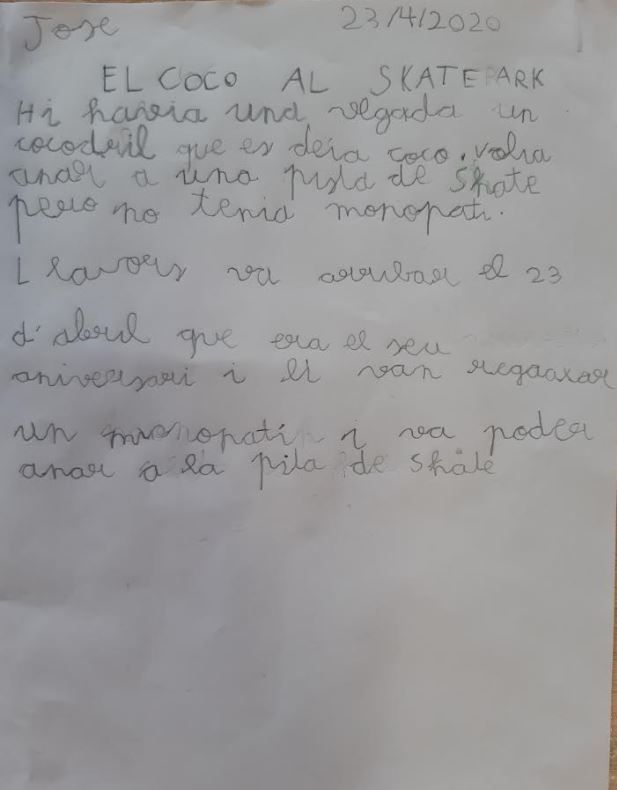 Jose
23/4/2020
EL COCO AL SKATEPARK
Hi havia una vegada un
cocodril que es deia coco. volia
anar a una pista de skate
pero no tenia monopati.
Llavors va arribar el 23
d'abril que era el seu
aniversari i li van regaaxar
un monopatí i va poder
anar a la pita de skate